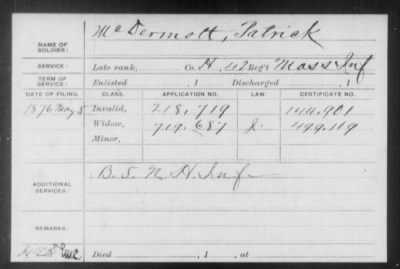 NAME OF SOLDIER: McDermott, Patrick
SERVICE: Late rank, Co. H, 42 Reg't Mass Inf
TERM OF SERVICE: Enlisted , 1 Discharged , 1
DATE OF FILING. CLASS. APPLICATION NO. LAW. CERTIFICATE NO.
1876 May 5 Invalid, 218,719 144,901
Widow, 719,687 J. 499,119
Minor,
ADDITIONAL SERVICES: B. 5. N. H. Inf
REMARKS:
Died , 1 , at